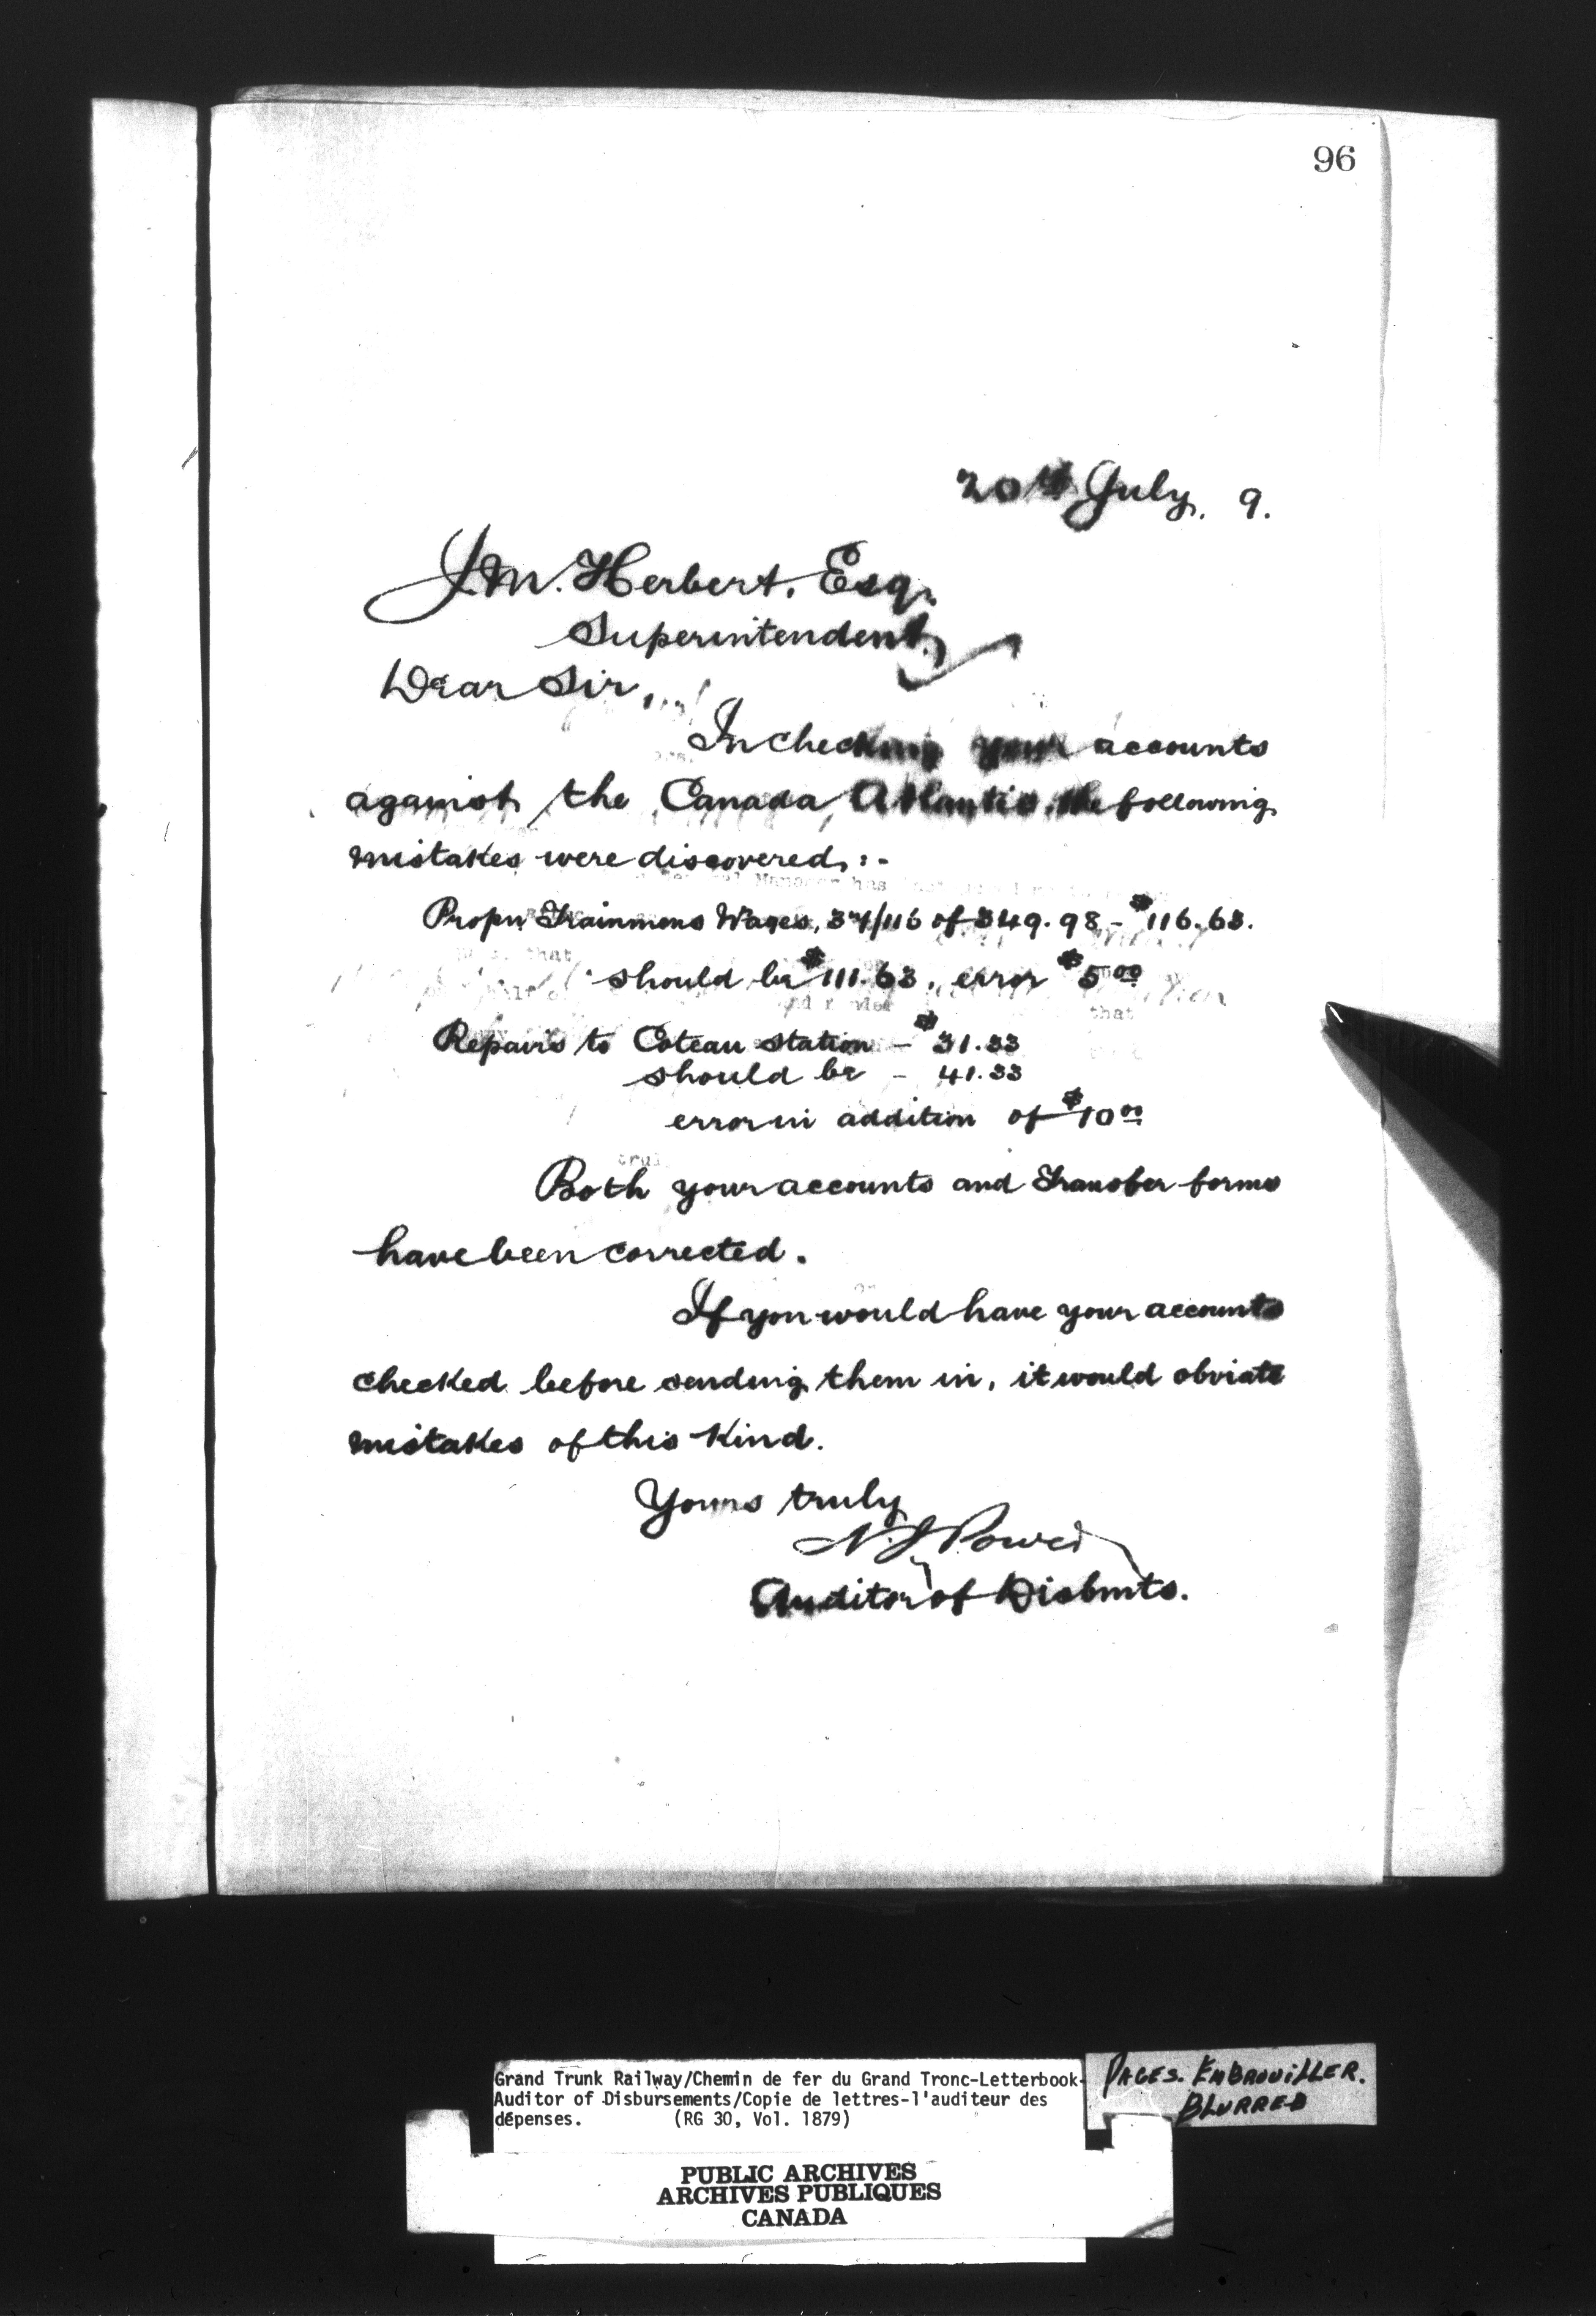 96
20th July, 9.
J.M. Herbert, Esq.
Superintendent,
Dear Sir,
In checking your accounts
against the Canada Atlantic the following
mistakes were discovered,:-
Propn Trainmens Wages, 37/116 of 349.98 - $116.63.
should be $111.63, error $5.00
Repairs to Coteau Station - $31.33
should be - 41.33
error in addition of $10.00
Both your accounts and Transfer forms
have been corrected.
If you would have your accounts
checked before sending them in, it would obviate
mistakes of this kind.
Yours truly
N J Power
Auditor of Disbmts.
Grand Trunk Railway/Chemin de fer du Grand Tronc-Letterbook-
Auditor of Disbursements/Copie de lettres-l'auditeur des
dépenses. (RG 30, Vol. 1879)
PAGES. EMBROUILLER.
BLURRED
PUBLIC ARCHIVES
ARCHIVES PUBLIQUES
CANADA